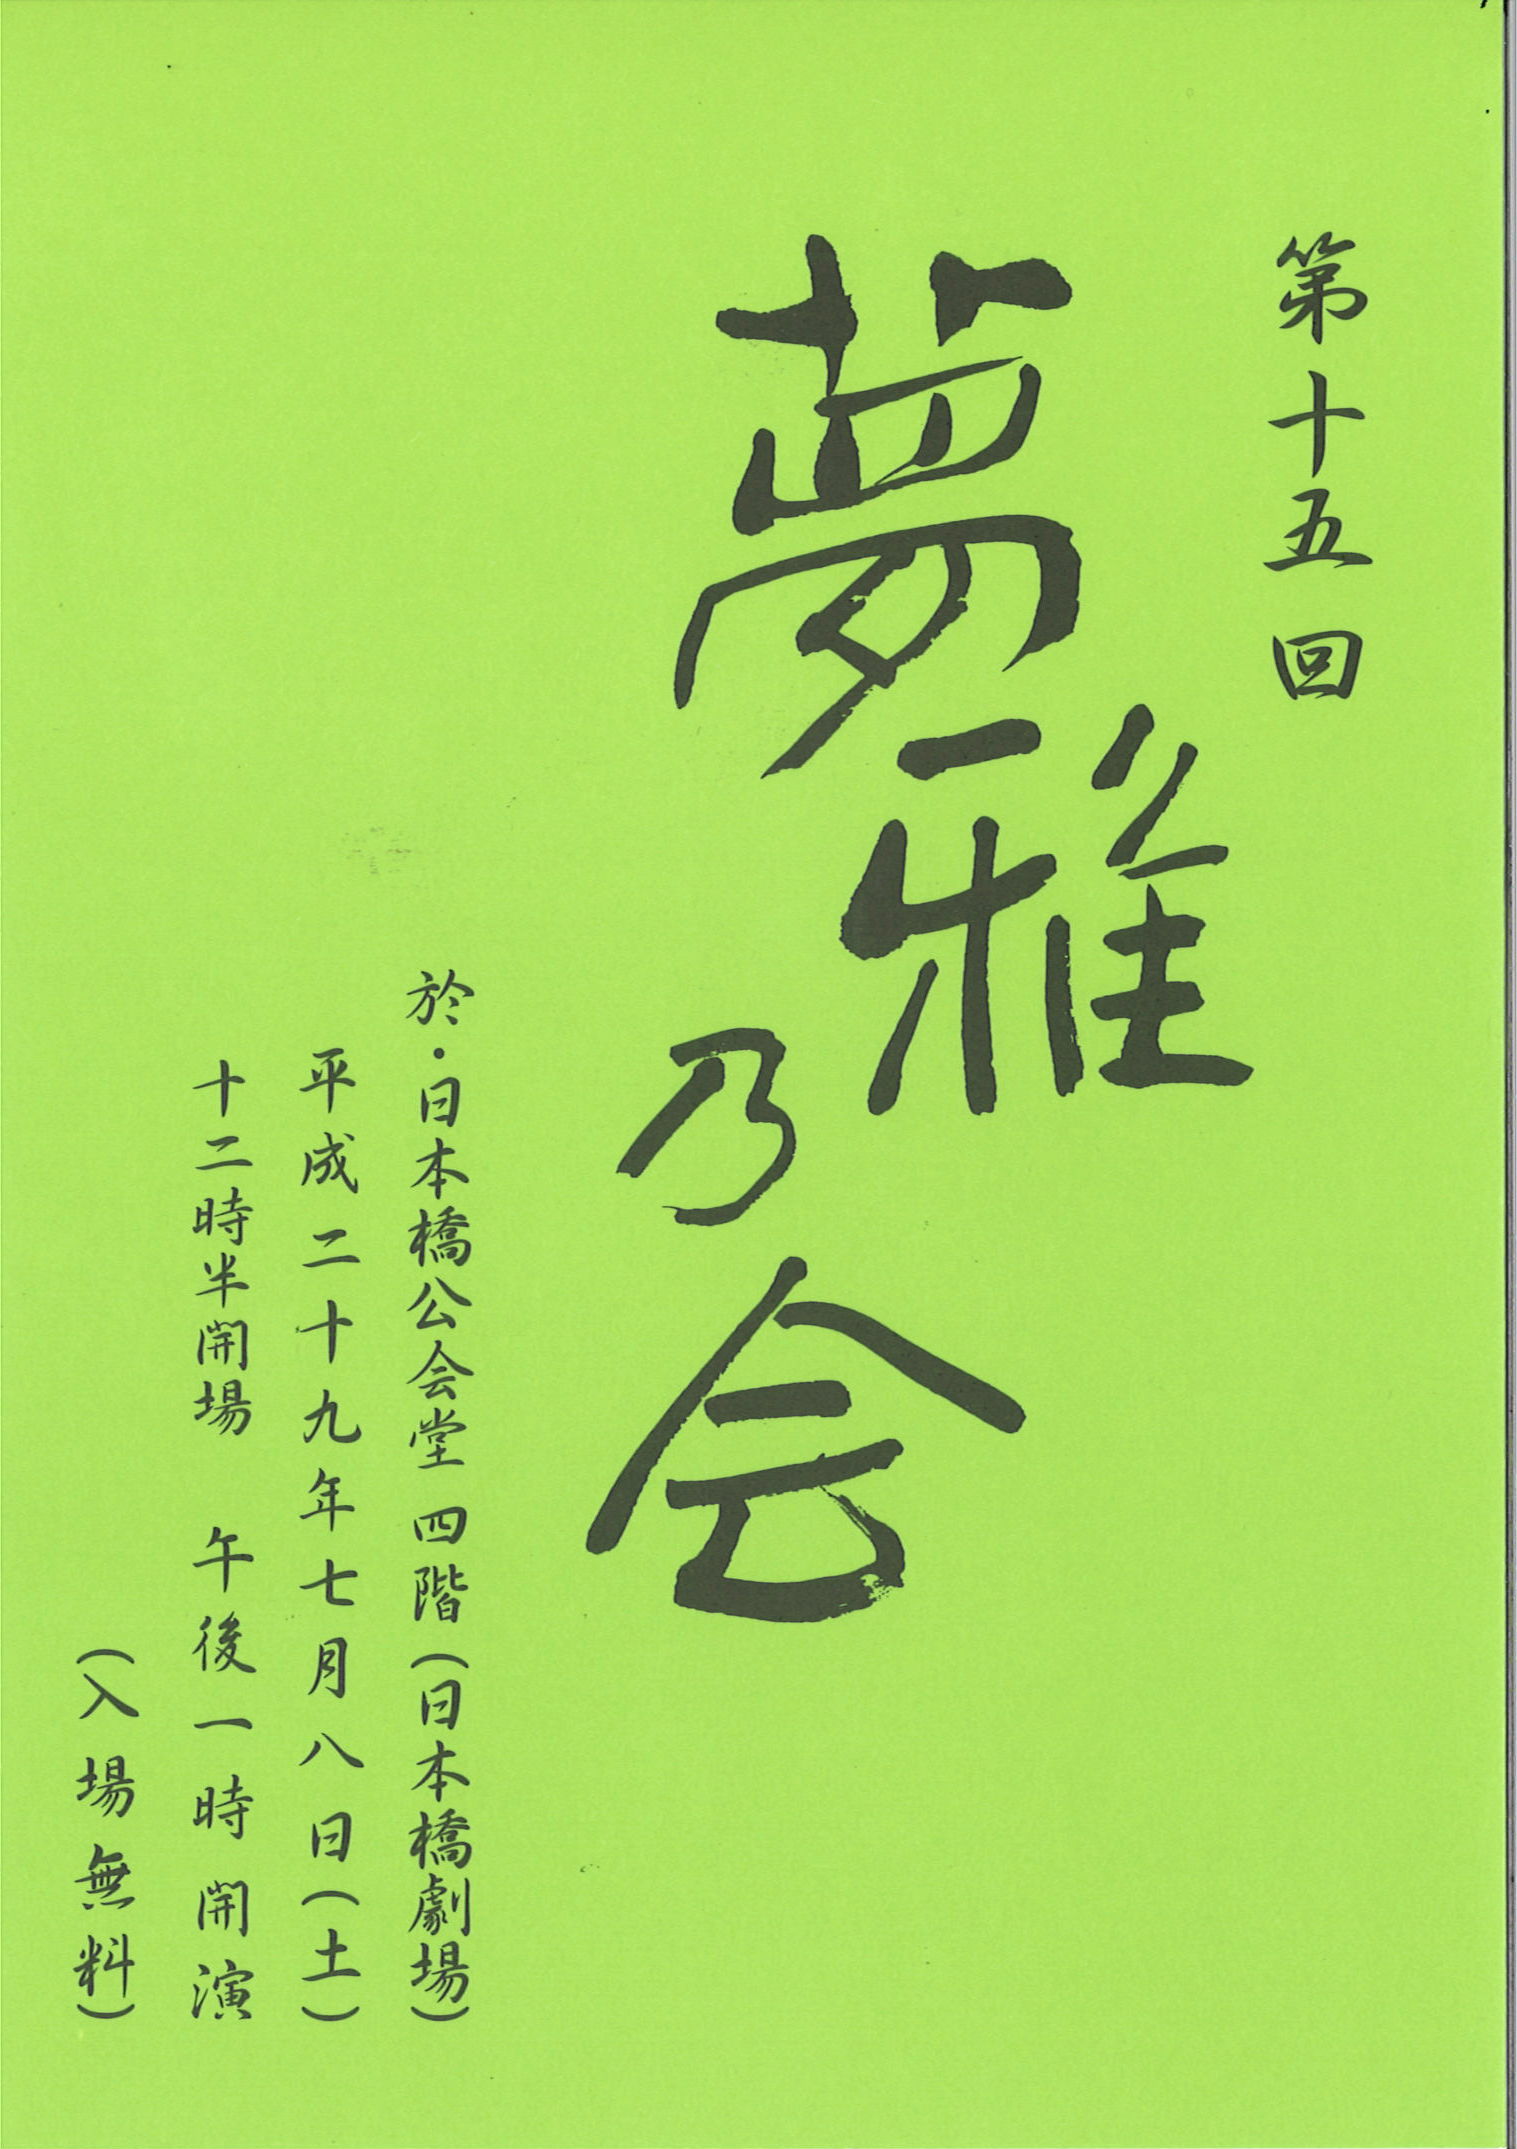 第十五回
夢雅乃会
於・日本橋公会堂 四階(日本橋劇場)
平成二十九年七月八日(土)
十二時半開場 午後一時開演
(入場無料)